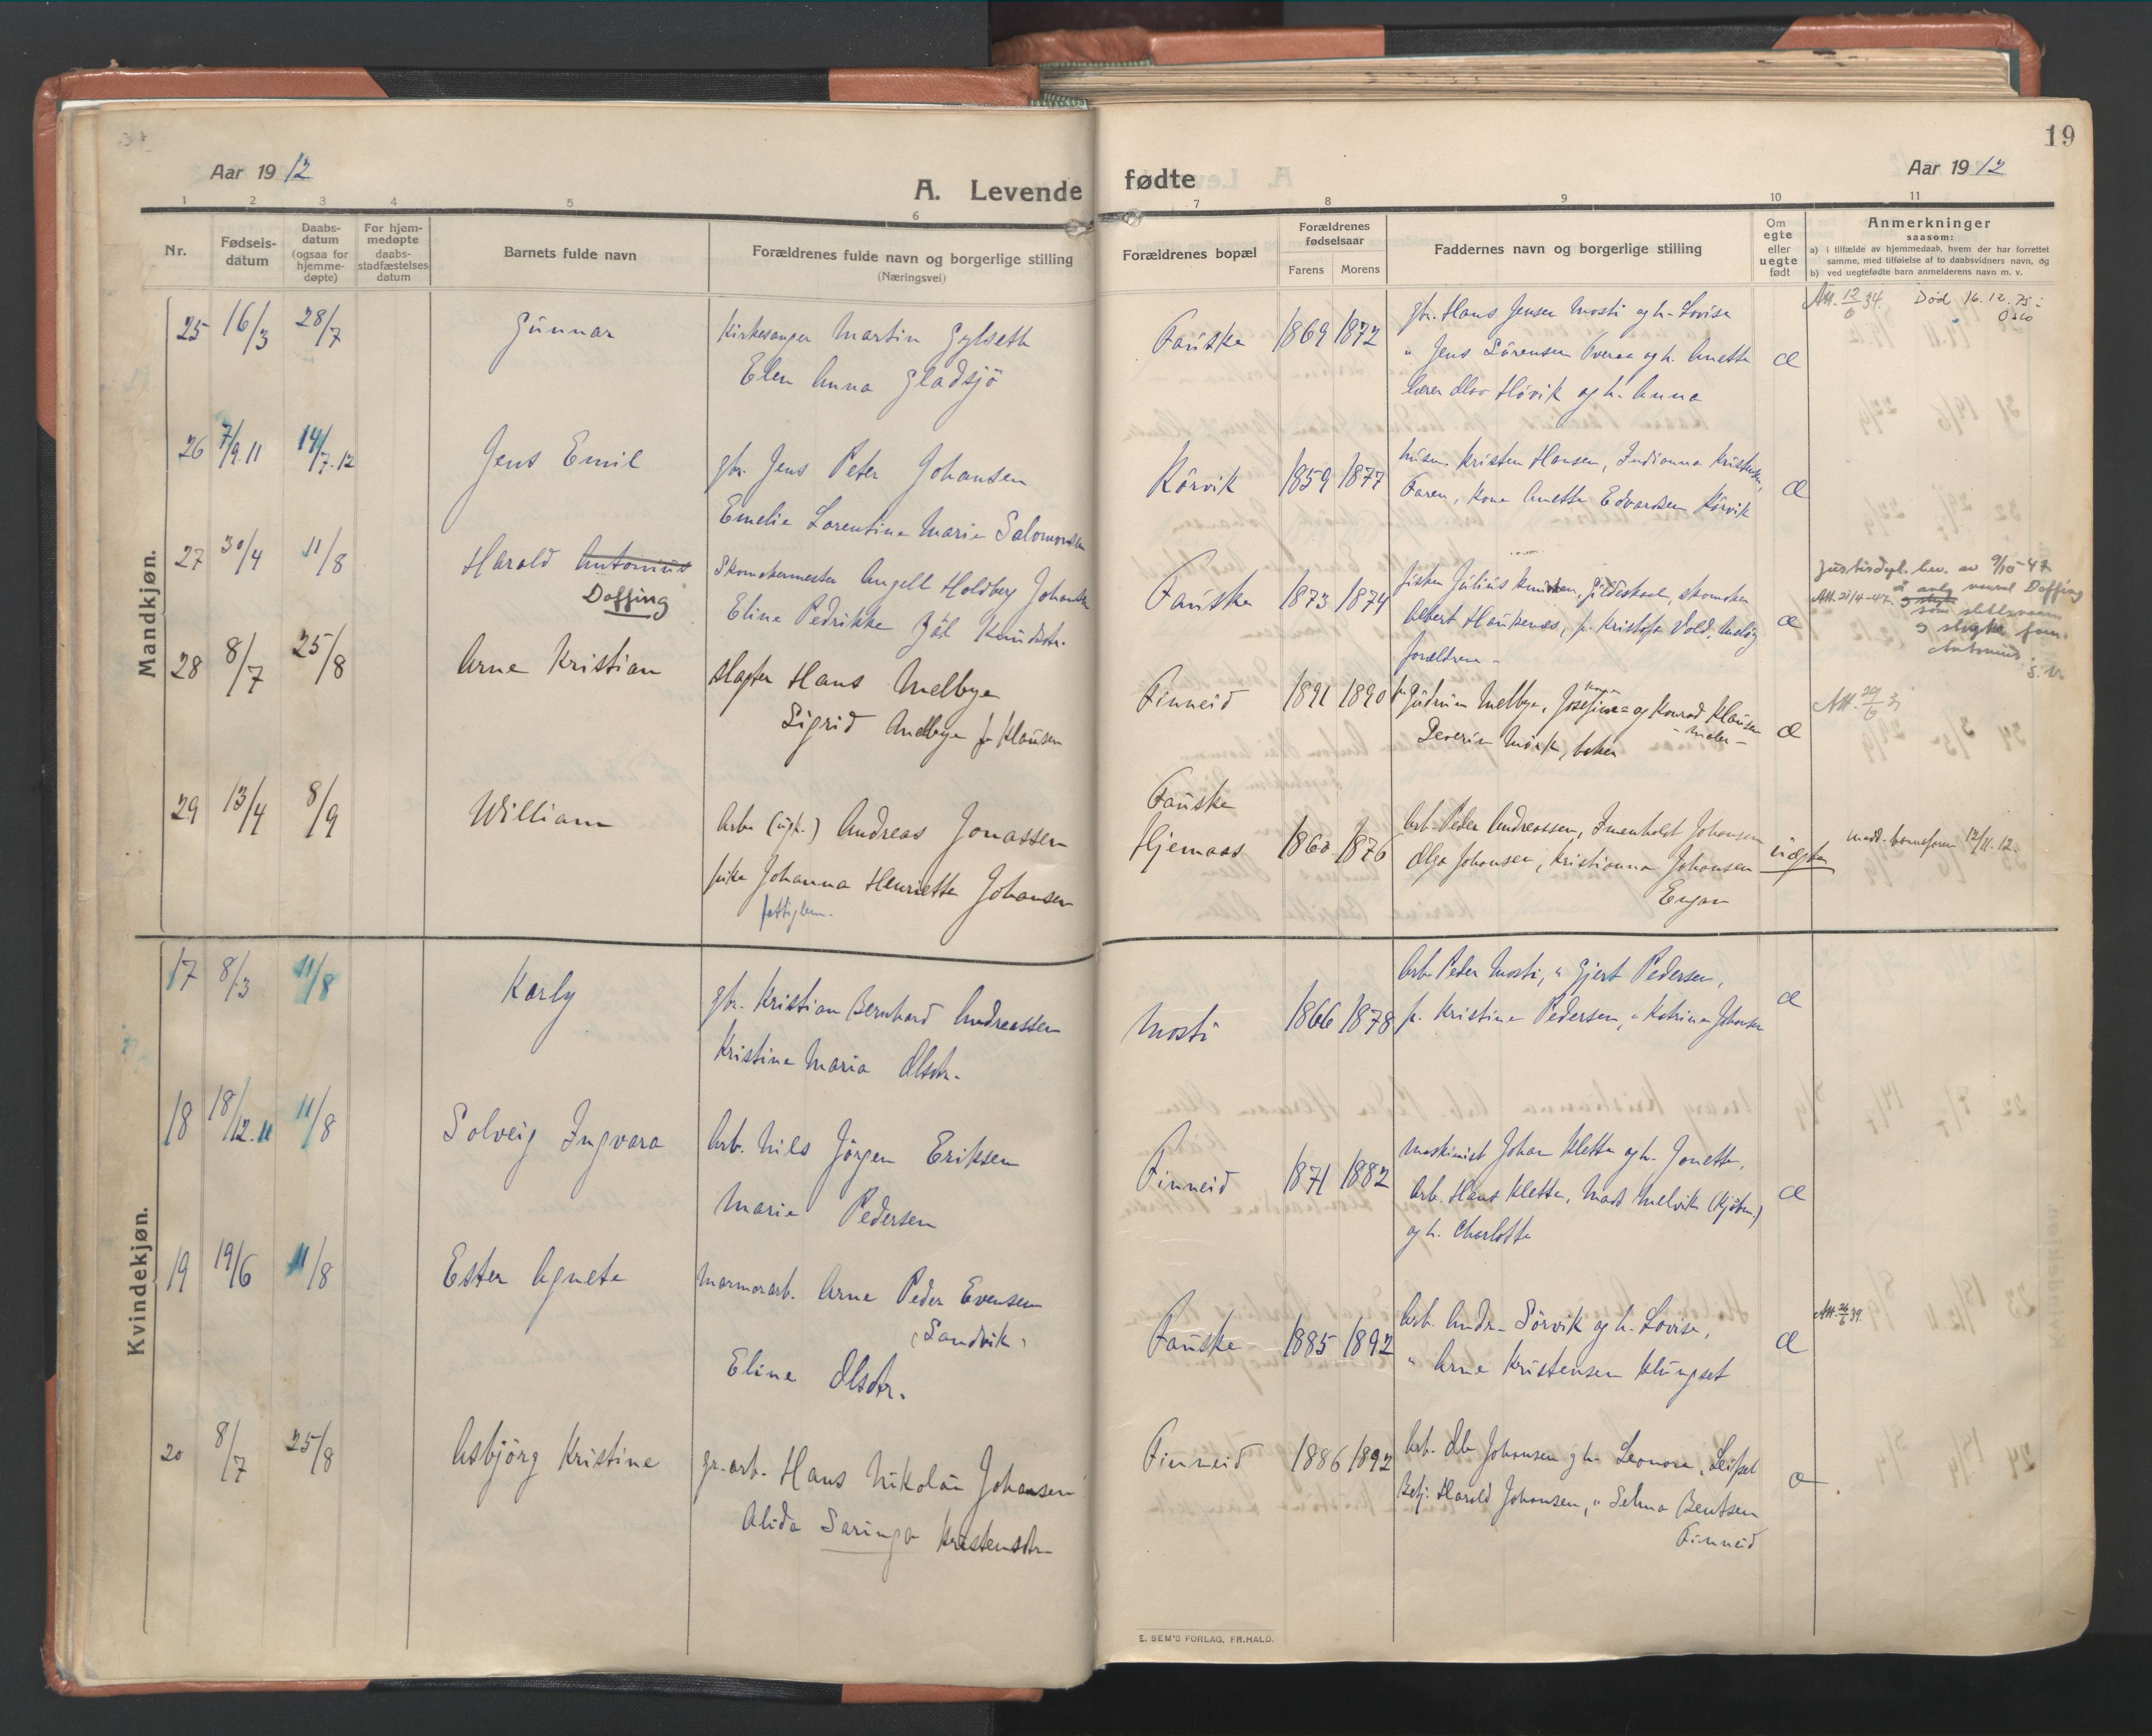 19
Aar 1912
A. Levende
fødte
Aar 1912
1 2 3 4 5 6 7 8 9 10 11
Nr.
Fødsels-
datum
Daabs-
datum
(ogsaa for
hjemme-
døpte)
For hjem-
medøpte
daabs-
stadfæstelses
datum
Barnets fulde navn
Forældrenes fulde navn og borgerlige stilling
(Næringsvei)
Forældrenes bopæl
Forældrenes
fødselsaar
Farens Morens
Faddernes navn og borgerlige stilling
Om
egte
eller
uegte
født
Anmerkninger
saasom:
a) i tilfælde av hjemmedaab, hvem der har forrettet
samme, med tilføielse af to daabsvidners navn, og
b) ved uegtefødte barn anmelderens navn m. v.
Mandkjøn.
25 16/3 28/7 Gunnar
Kirkesanger Martin Gylseth
Elen Anna Gladsjö
Fauske 1869 1872
gbr. Hans Jensen Mosti og h. Lovise
" Jens Sörensen Överaa og h. Anette
lærer Olav Hövik og h. Anna
æ
Att. 12/6 34. Död 16.12.75 i
Oslo
26 7/9.11 14/7.12 Jens Emil
gbr. Jens Peter Johansen
Emelie Lorentine Marie Salomonsen
Körvik 1859 1877
husm. Kristen Hansen, Indianna Kristensen,
Faren, Kone Anette Edvardsen Körvik
æ
27 30/4 11/8 Harald Antonius
Doffing
Skomakermester Angell Holdberg Johansen
Eline Pedrikke Knudsdtr.
Fauske 1873 1874
fisker Julius Knudsen, Gildeskaal, skomaker
Albert Haukenes, p. Kristofa Vold,
forældrene
æ
av 9/10-47
Att. 21/4-47. navnet Doffing
som slektsnavn
Antonius
28 8/7 25/8 Arne Kristian
slagter Hans Melbye
Sigrid Melbye f. Klausen
Finneid 1891 1890
Gudrun Melbye, Josefine og Konrad Klausen
- maler -
Severin Mörk, baker
æ
Att. 29/6 3
29 13/4 8/9 William
Arb. (ugk.) Andreas Jonassen
pike Johanna Henriette Johansen
fattiglem.
Fauske
Hjemaas 1860 1876
Arb. Peder Andreassen, Johansen
Olga Johansen, Kristianna Johansen
Engan
uægte
medd. barnefaren 12/11.12.
Kvindekjøn.
17 8/3 11/8 Karly
gbr. Kristian Bernhard Andreassen
Kristine Maria Olsdtr.
Mosti 1866 1878
Arb. Peder Mosti, " Gjert Pedersen,
p. Kristine Pedersen, " Katrine Johansen
æ
18 18/12.11 11/8 Solveig Ingvara
Arb. Nils Jörgen Eriksen
Marie Pedersen
Finneid 1871 1882
Maskinist Johan Kletta og h. Jonette,
Arb. Hans Kletta, Mads Melvik (kjöbm.)
og h. Charlotte
æ
19 19/6 11/8 Ester Agnete
Marmorarb. Arne Peder Evensen
(Sandvik)
Eline Olsdtr.
Fauske 1885 1892
Arb. Andr. Sörvik og h. Lovise,
" Arne Kristensen Klungset
æ
Att. 26/6 39.
20 8/7 25/8 Asbjörg Kristine
gr. arb. Hans Nikolai Johansen
Alida Saringa Kristensdtr
Finneid 1886 1892
Arb. Johansen og h. Leonore, Leifset
Betj. Harald Johansen, " Selma Bentsen
Finneid
æ
E. SEM'S FORLAG, FR.HALD.